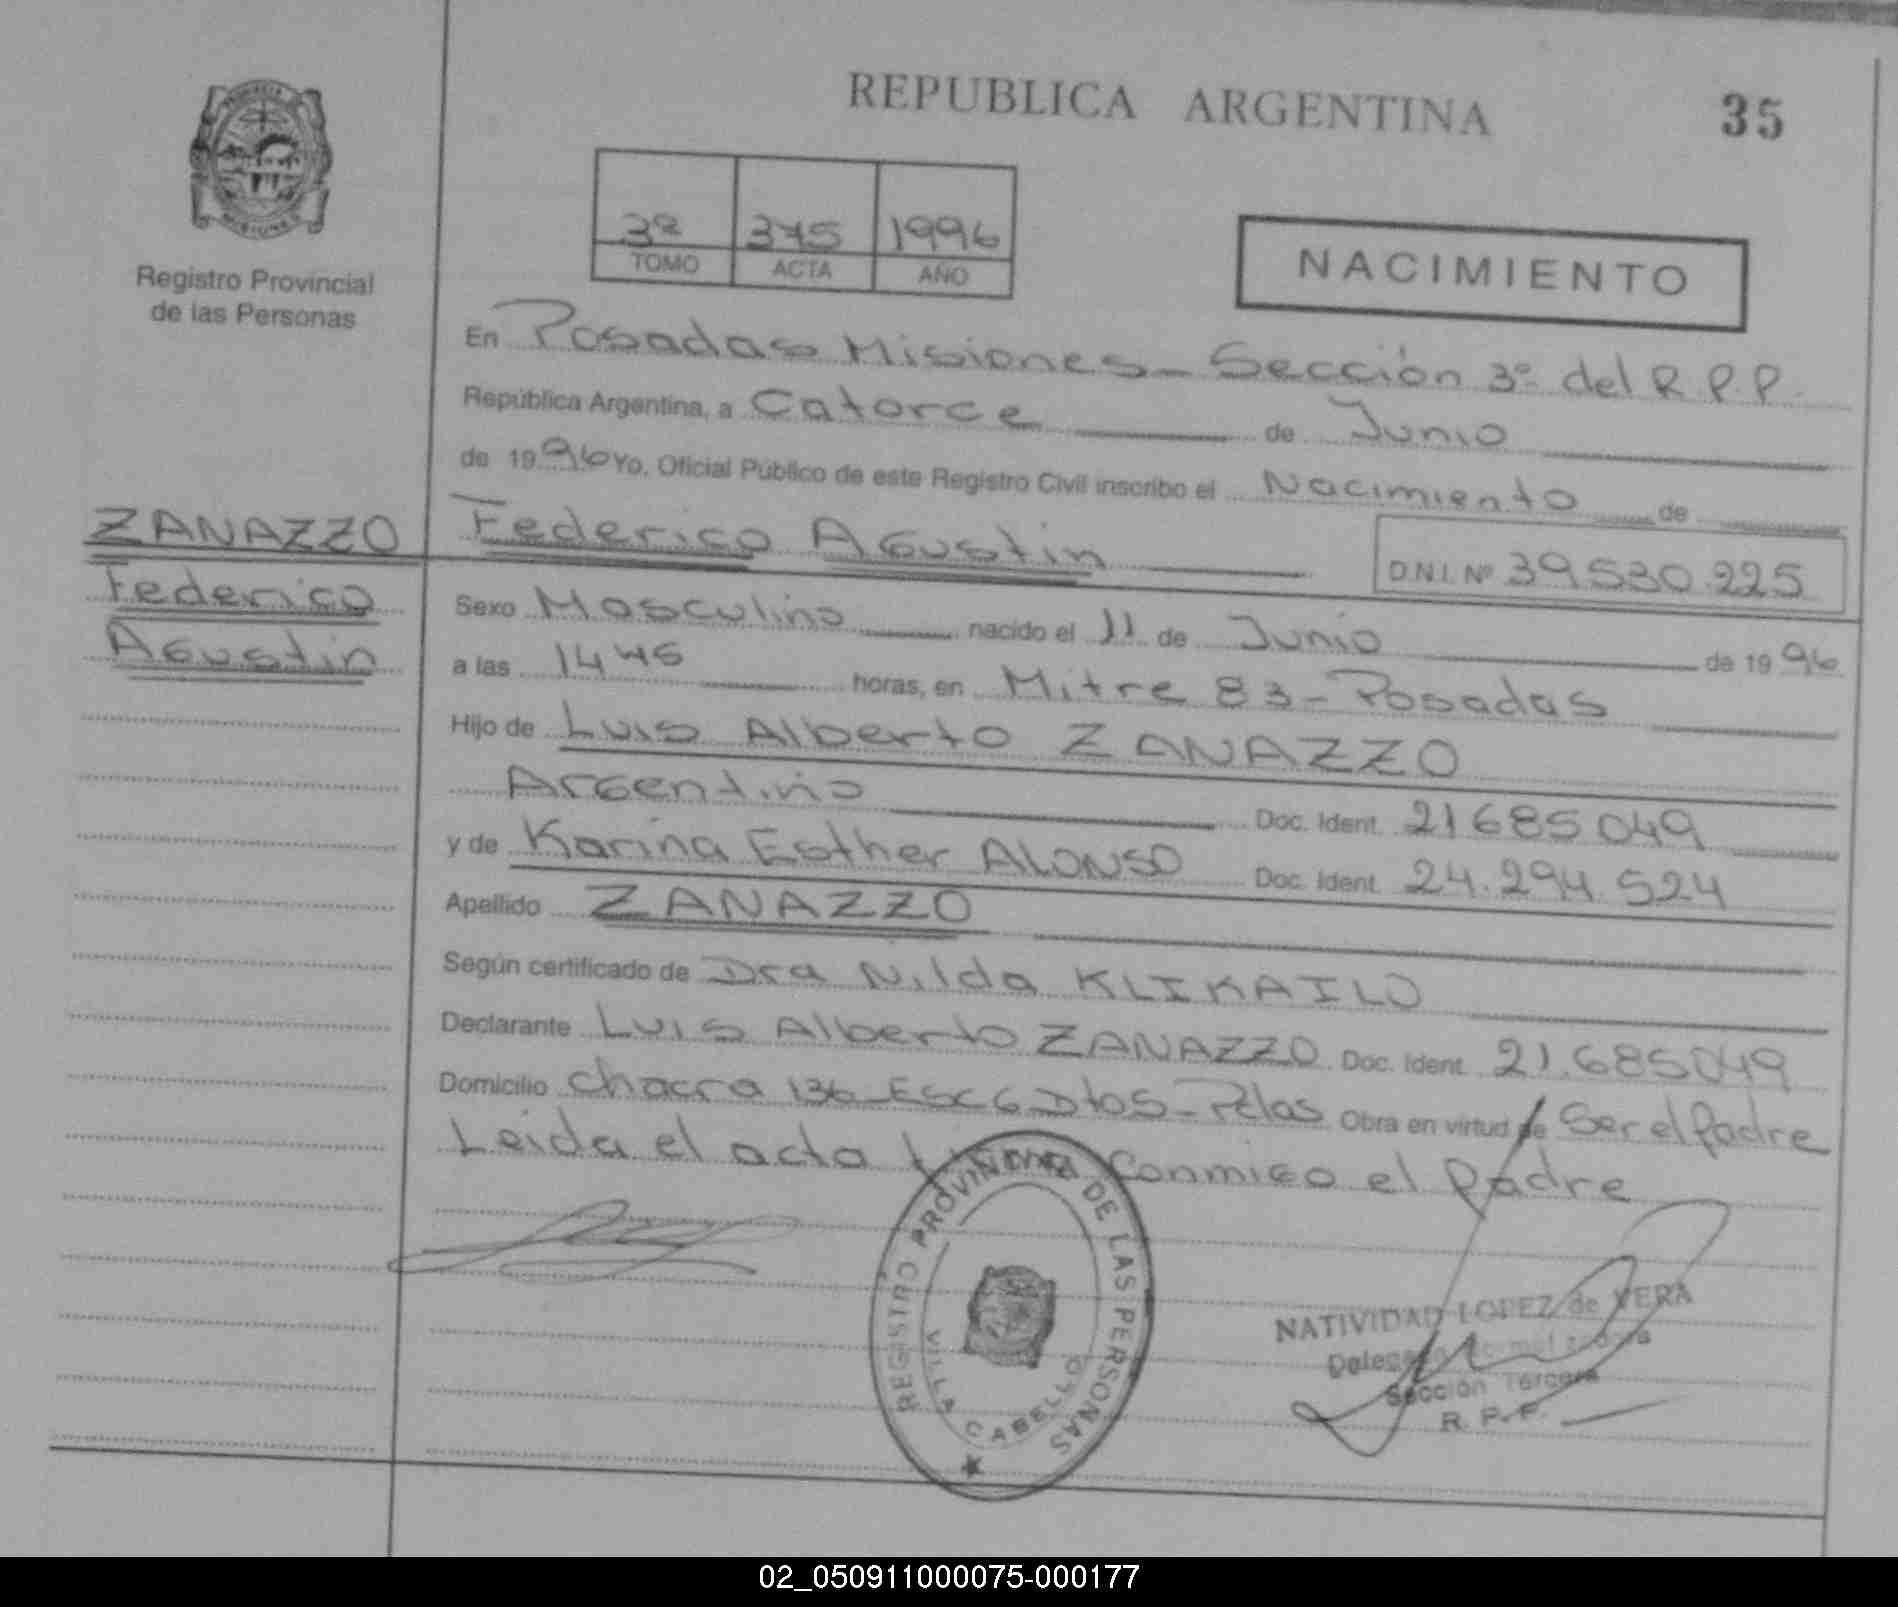 REPUBLICA ARGENTINA
35
3º 375 1996
TOMO ACTA AÑO
NACIMIENTO
Registro Provincial
de las Personas
En Posadas Misiones - Sección 3º del R.P.P.
República Argentina, a Catorce de Junio
de 1996 Yo, Oficial Público de este Registro Civil inscribo el Nacimiento de
ZANAZZO Federico Agustin
D.N.I. Nº 39530.225
Federico
Agustin
Sexo Masculino nacido el 11 de Junio de 1996
a las 14 45 horas, en Mitre 83 - Posadas
Hijo de Luis Alberto ZANAZZO
Argentino Doc. Ident. 21685049
y de Karina Esther ALONSO Doc. Ident. 24.294.524
Apellido ZANAZZO
Según certificado de Dra Nilda KLIKAILO
Declarante Luis Alberto ZANAZZO Doc. Ident. 21.685049
Domicilio Chacra 136 - Esc 6 Dto5 - Pdas Obra en virtud de Ser el Padre
Leida el acta Conmigo el Padre
REGISTRO PROVINCIAL DE LAS PERSONAS
VILLA CABELLO
NATIVIDAD LOPEZ de VERA
Sección Tercera
R. P. P.
02_050911000075-000177